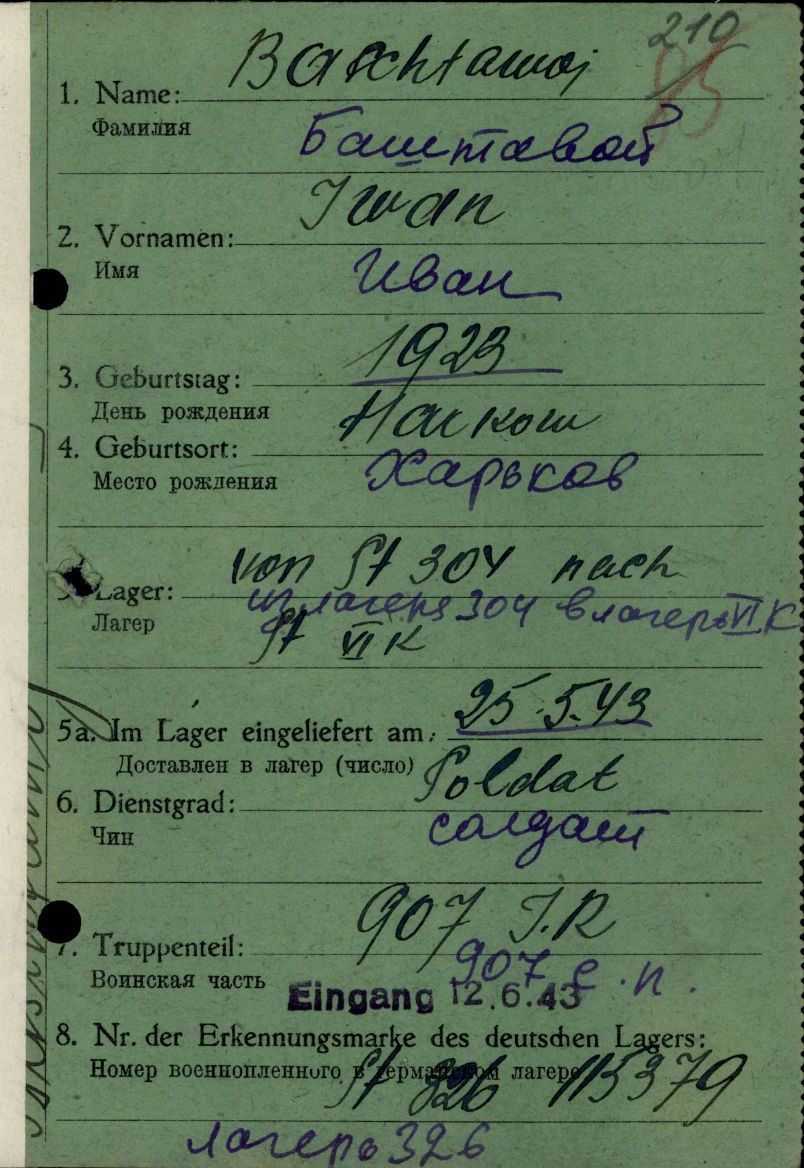 210
Baschtawoj
1. Name:
Фамилия
Баштавой
Iwan
2. Vornamen:
Имя
Иван
1923
3. Geburtstag:
День рождения
Harkow
4. Geburtsort:
Место рождения
Харьков
von St 304 nach
Lager:
из лагеря 304 в лагерь VI K
Лагер
St VI K
5a. Im Lager eingeliefert am: 25.5.43
Доставлен в лагер (число)
Soldat
6. Dienstgrad:
Чин
солдат
907 I.R
7. Truppenteil:
907 с.п.
Воинская часть
Eingang 12.6.43
8. Nr. der Erkennungsmarke des deutschen Lagers:
Номер военнопленного в германском лагере
St 326 115379
лагерь 326